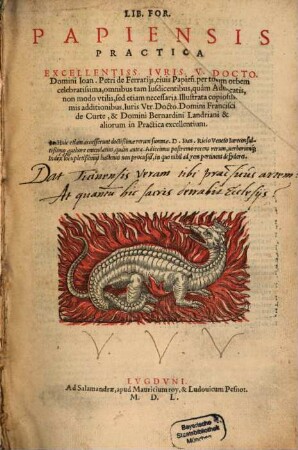 LIB. FOR.
PAPIENSIS
PRACTICA
EXCELLENTISS. IVRIS V. DOCTO.
Domini Ioan. Petri de Ferrarijs, ciuis Papien. per totum orbem
celebratissima, omnibus tam Iusdicentibus, quàm Aduocatis,
non modo vtilis, sed etiam necessaria. Illustrata copiosiss
mis additionibus Iuris Vtr. Docto. Domini Francisci
de Curte, & Domini Bernardini Landriani &
aliorum in Practica excellentium.
D. Ioan.
Index
Dat Ticinensis veram tibi praesivius artem
At quantū his sacris Ecclesijs?
LVGDVNI.
Ad Salamandræ, apud Mauricium roy, & Ludouicum Pesnot.
M. D. L.
Bayerische
Staatsbibliothek
München